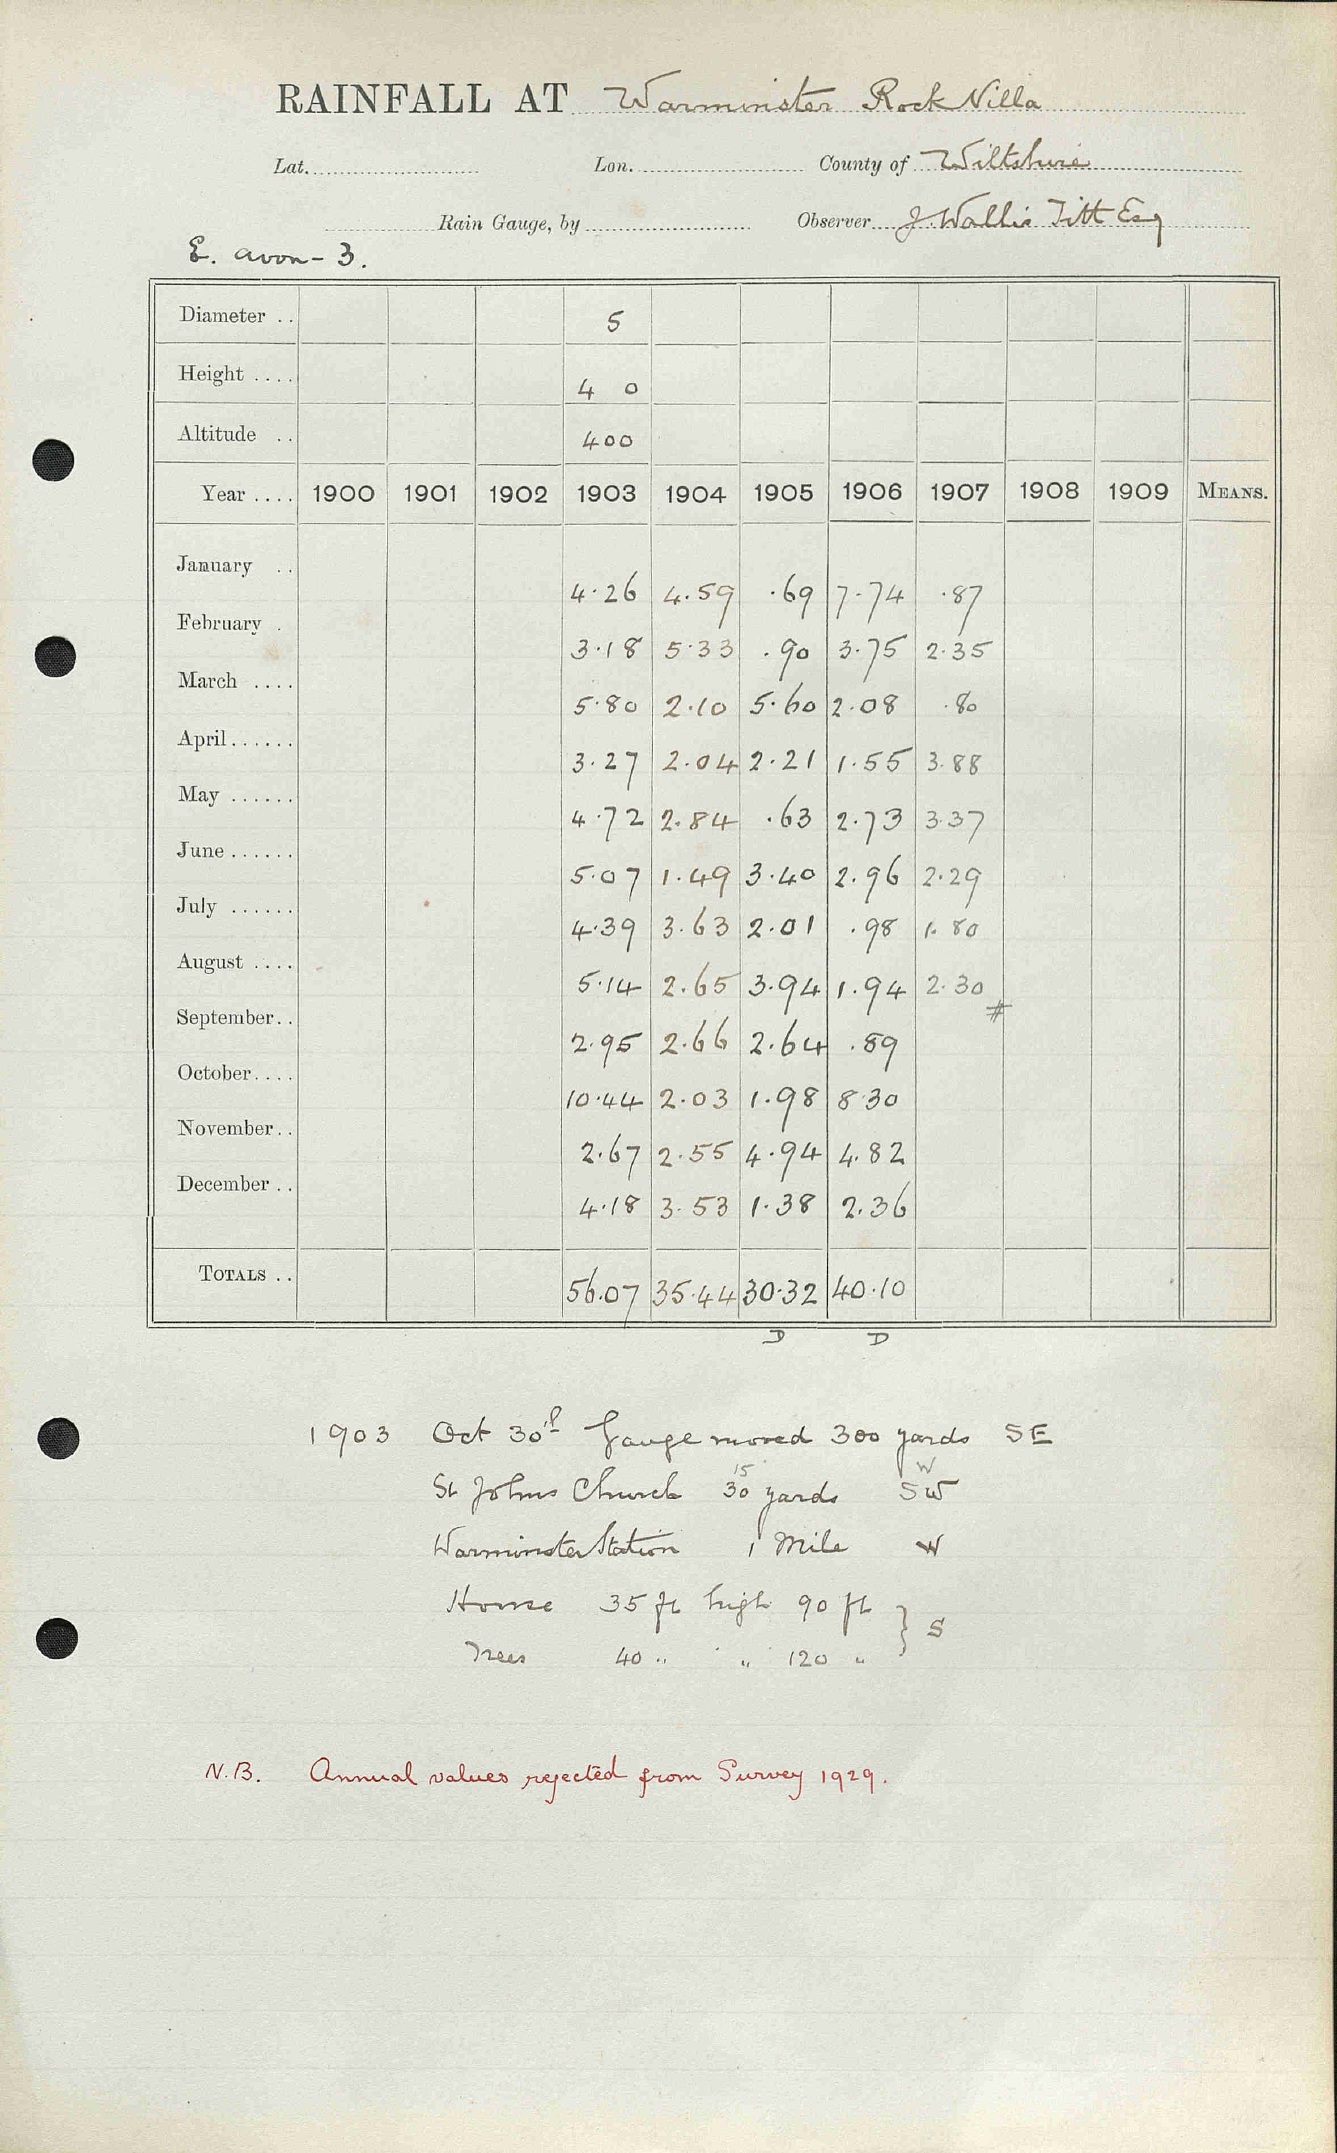 RAINFALL AT Warminster Rock Villa
Lat. Lon. County of Wiltshire
Rain Gauge, by Observer J. Wallis Titt Esq
E. avon - 3.
Diameter .. 5
Height .... 4 0
Altitude .. 400
Year .... 1900 1901 1902 1903 1904 1905 1906 1907 1908 1909 MEANS.
January .. 4.26 4.59 .69 7.74 .87
February . 3.18 5.33 .90 3.75 2.35
March .... 5.80 2.10 5.60 2.08 .80
April...... 3.27 2.04 2.21 1.55 3.88
May ...... 4.72 2.84 .63 2.73 3.37
June...... 5.07 1.49 3.40 2.96 2.29
July ...... 4.39 3.63 2.01 .98 1.80
August .... 5.14 2.65 3.94 1.94 2.30 #
September.. 2.95 2.66 2.64 .89
October.... 10.44 2.03 1.98 8.30
November.. 2.67 2.55 4.94 4.82
December .. 4.18 3.53 1.38 2.36
TOTALS .. 56.07 35.44 30.32 40.10
D D
1903 Oct 30th Gauge moved 300 yards SE
15 W
St Johns Church 30 yards SW
Warminster Station 1 Mile W
House 35 ft high 90 ft } S
Trees 40 " " " 120 "
N.B. Annual values rejected from Survey 1929.